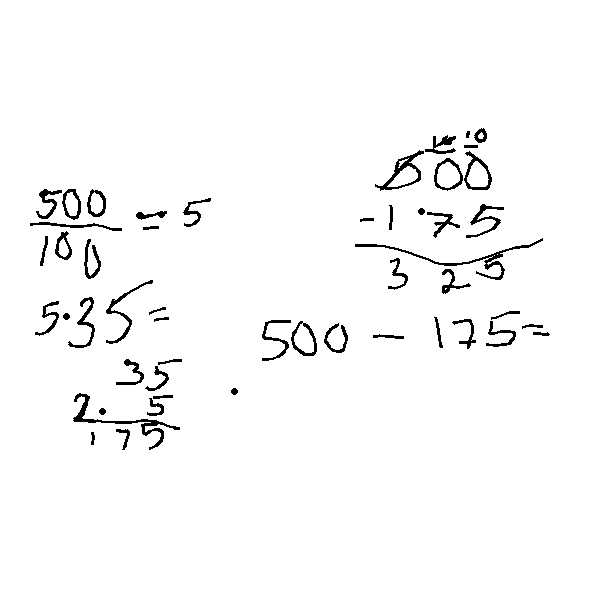 500
100 = 5
5·35 =
35
2· 5
175
10 10
500
-1·75
325
500 - 175 =